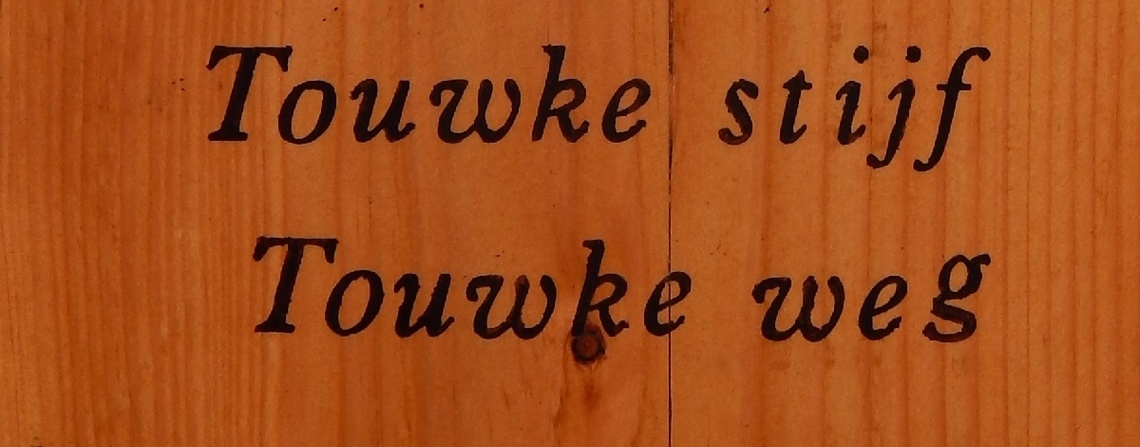 Touwke stijf
Touwke weg